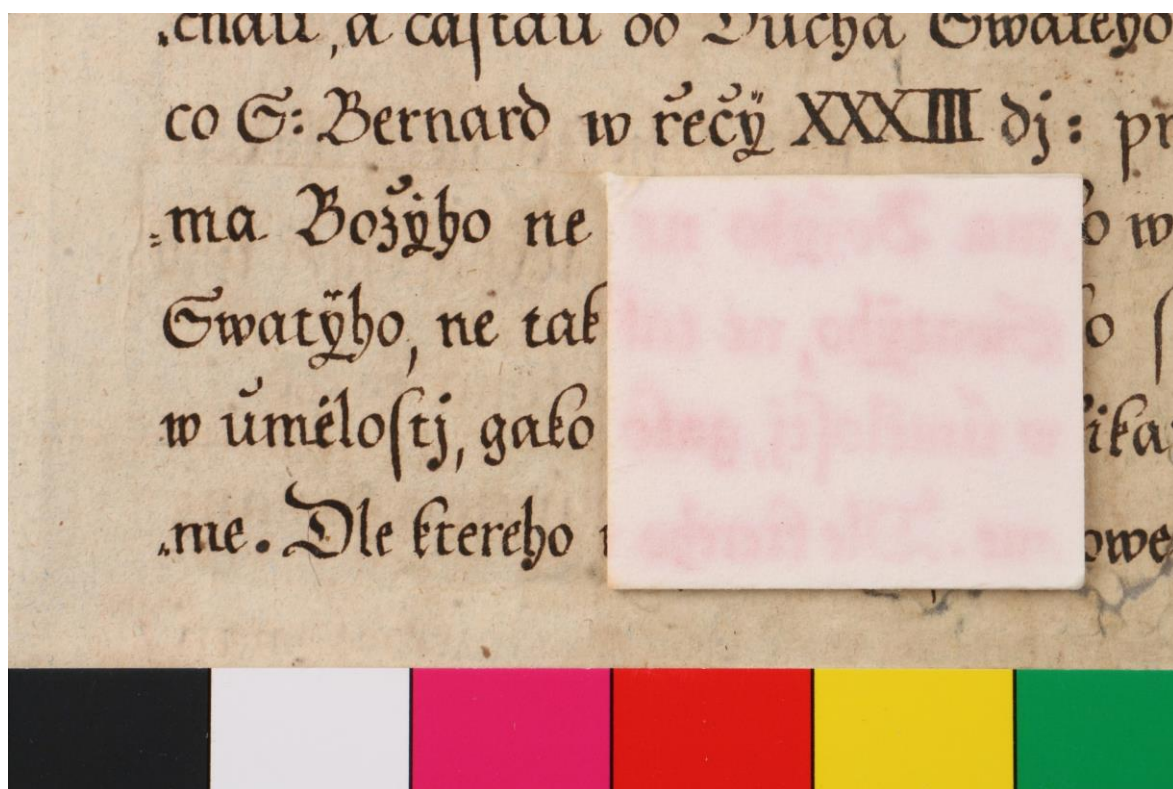 chau, a caſtau od Ducha Swateho
co S: Bernard w řečÿ XXXIII dj: pr
ma Božÿho ne o w
Swatÿho, ne tak o ſ
w ŭmėloſtj, gako ika
me. Dle ktereho owe